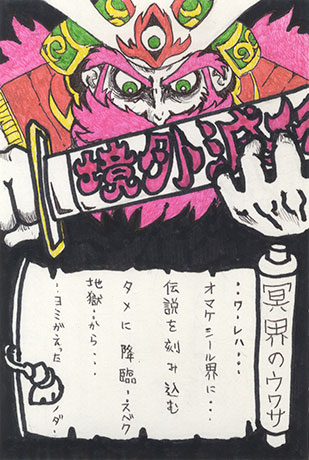 境外滅
冥界のウワサ
・・ワ・レハ・・・
オマケシール界に・・・
伝説を刻み込む
タメに降臨・・スベク
地獄・・から・・・
・・ヨミがえった・・ノダ・